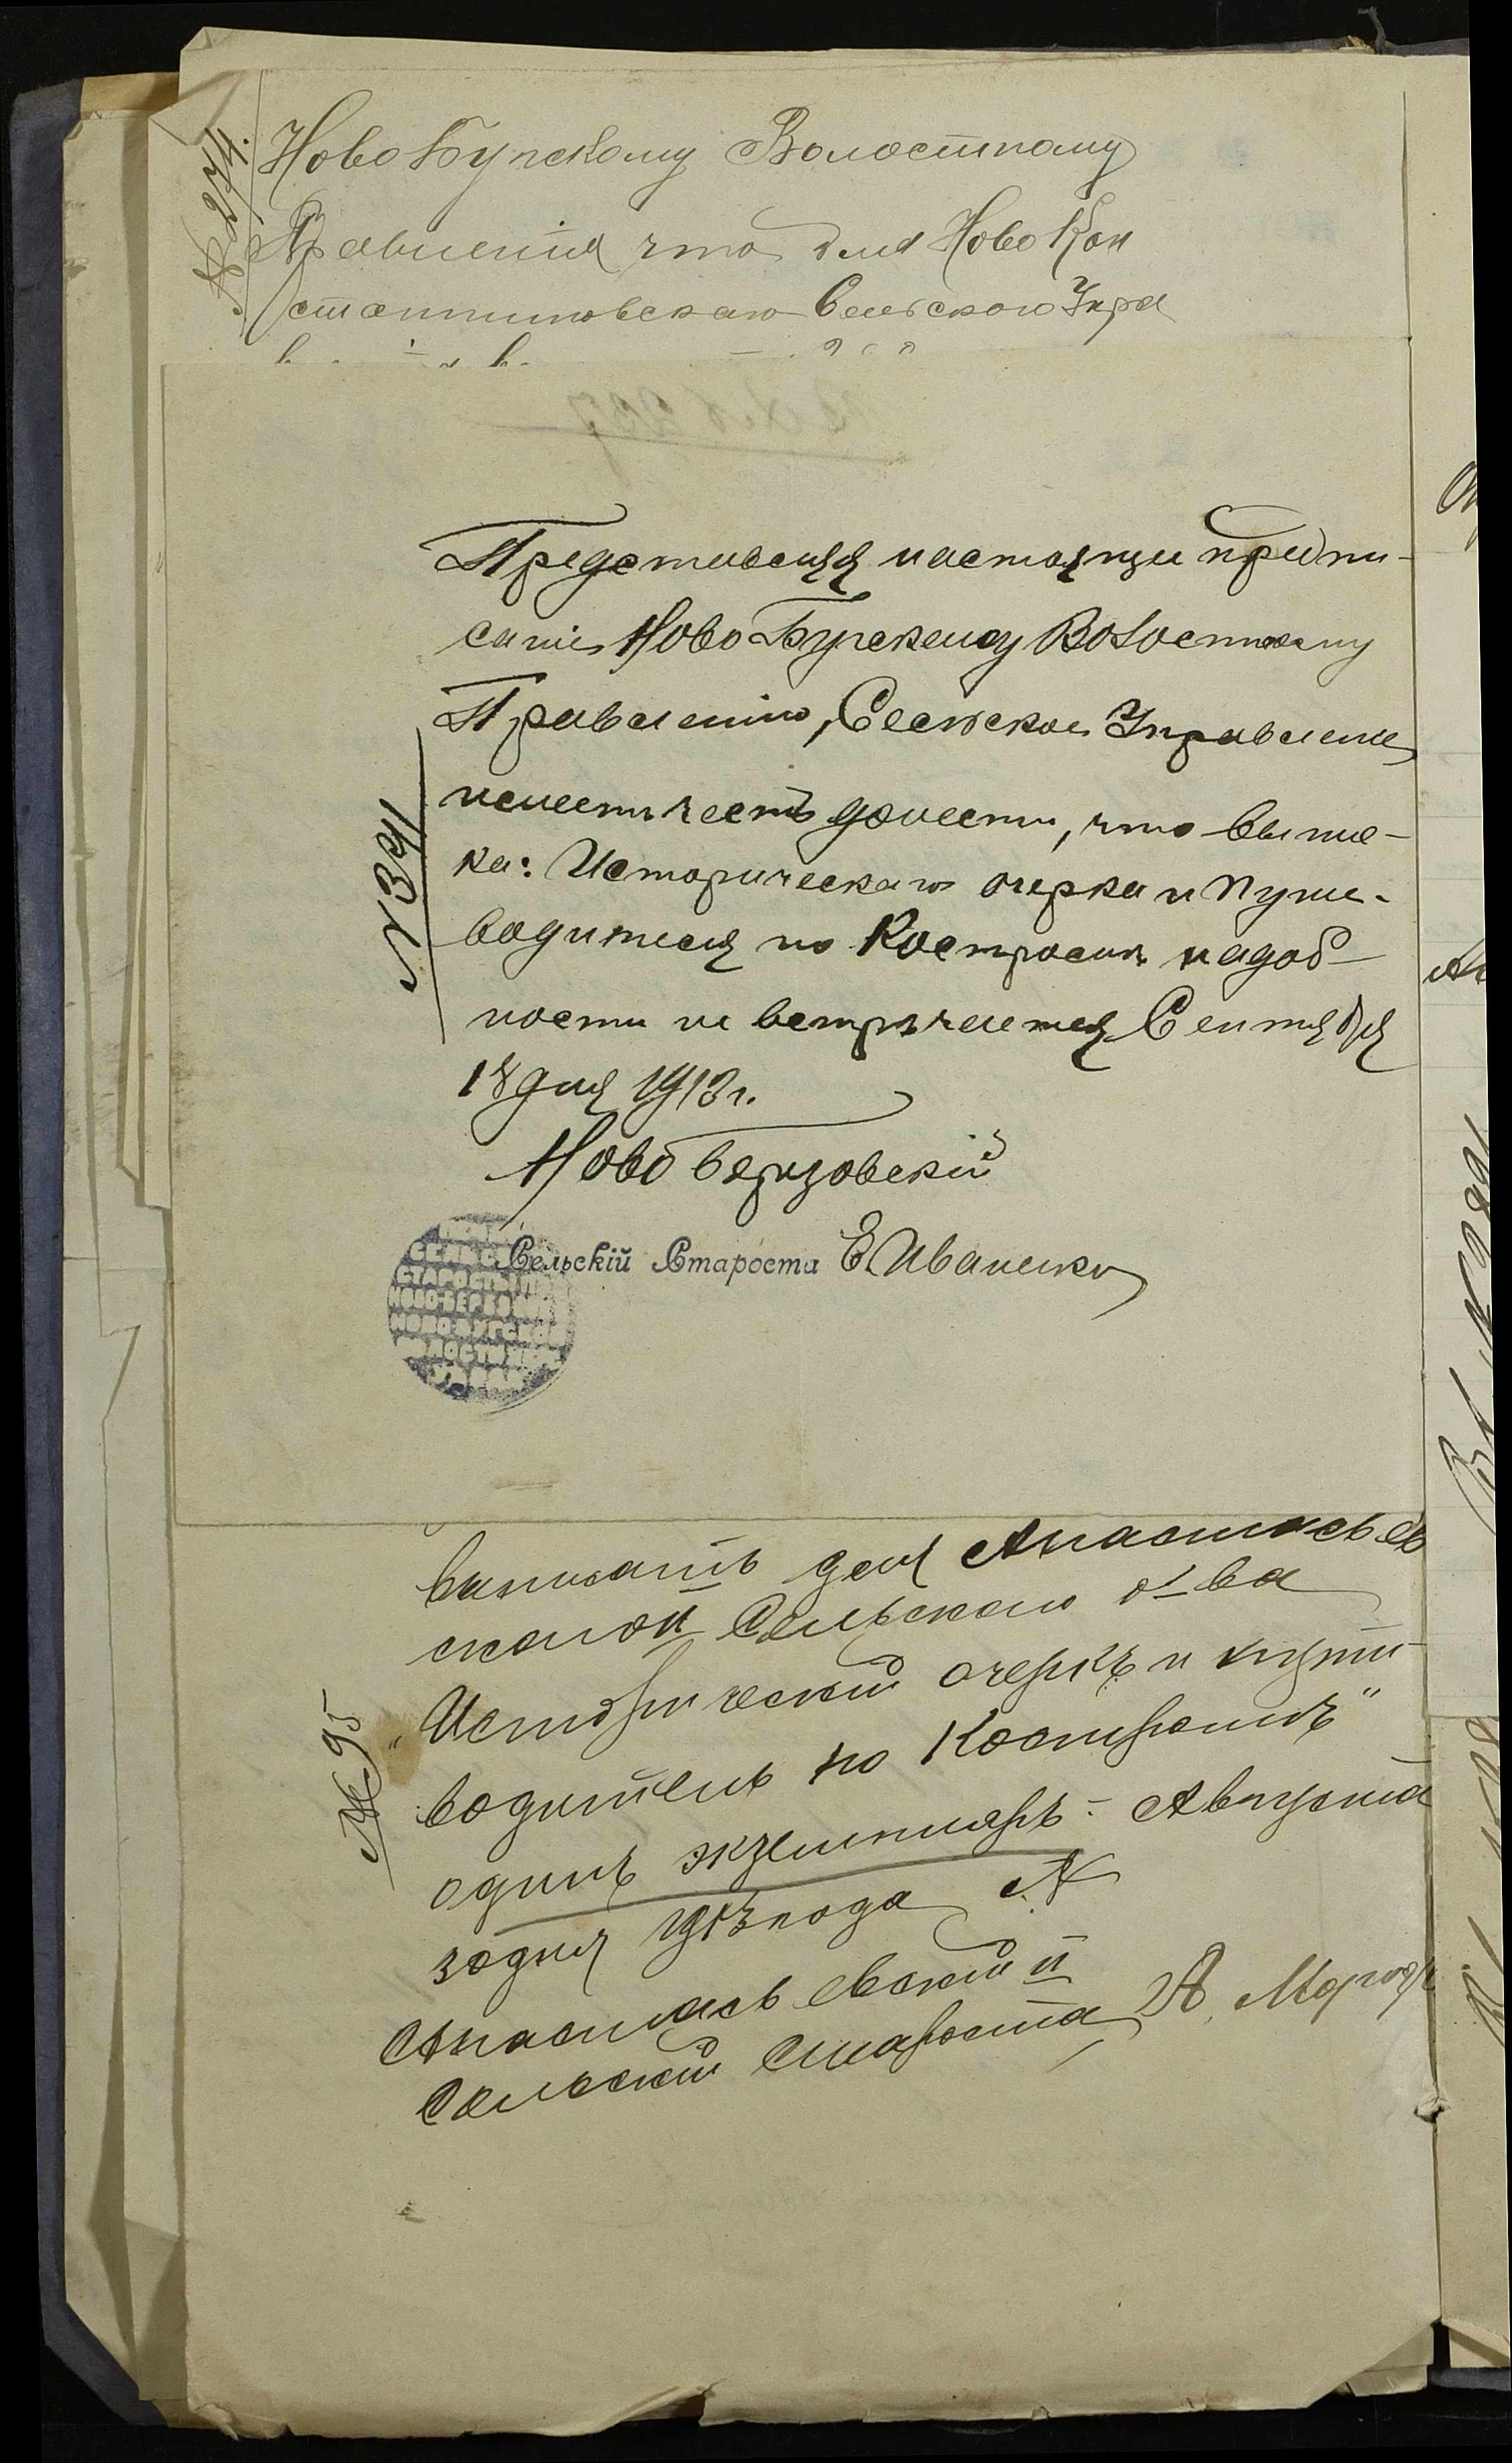 № 274.
Ново Бугскому Волостному
Правленiя что для Ново Кон
стантиновскаго Сельского Упра
Представляя настоящие предпи-
сание Ново Бугскому Волостному
Правленiю, Сельское Управление
имеетъ честь донести, что выпис-
ка: Историческаго очерка и Путе-
водителя по Костроме надоб-
ности не встречается Сентября
18 дня 1913 г.
№ 391
Ново Березовскiй
Сельскiй Староста Е Иваненко
СЕЛЬС
СТАРОСТЫ
НОВО-БЕРЕЗ
НОВО-БУГСКОЙ
ВОЛОСТИ
выписать для Анастасьев
ской II Сельского о-ва
„Исторический очеркъ и пути-
водитель по Костромъ"
одинъ экземпляръ - Августа
30 дня 1913 года №
№ 95
Анастасьевский II
Сельский Староста А.